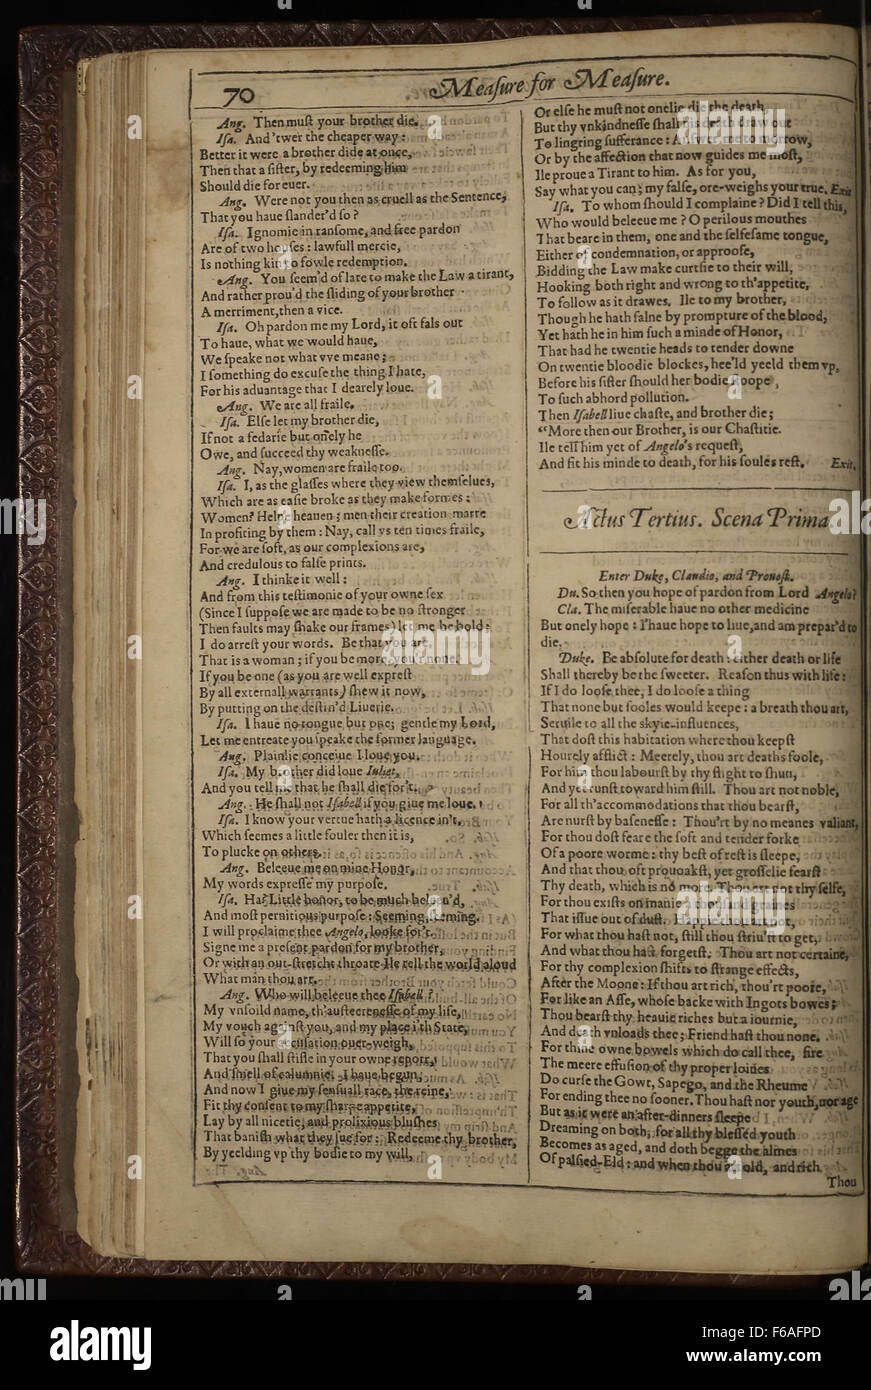 70
Measure for Measure.
Ang. Then muſt your brother die.
Iſa. And 'twer the cheaper way:
Better it were a brother dide at once,
Then that a ſiſter, by redeeming him
Should die for euer.
Ang. Were not you then as cruell as the Sentence,
That you haue ſlander'd ſo?
Iſa. Ignomie in ranſome, and free pardon
Are of two houſes: lawfull mercie,
Is nothing kin to fowle redemption.
Ang. You ſeem'd of late to make the Law a tirant,
And rather prou'd the ſliding of your brother
A merriment, then a vice.
Iſa. Oh pardon me my Lord, it oft fals out
To haue, what we would haue,
We ſpeake not what vve meane;
I ſomething do excuſe the thing I hate,
For his aduantage that I dearely loue.
Ang. We are all fraile.
Iſa. Elſe let my brother die,
If not a fedarie but onely he
Owe, and ſucceed thy weakneſſe.
Ang. Nay, women are fraile too.
Iſa. I, as the glaſſes where they view themſelues,
Which are as eaſie broke as they make formes:
Women? Helpe heauen; men their creation marre
In profiting by them: Nay, call vs ten times fraile,
For we are ſoft, as our complexions are,
And credulous to falſe prints.
Ang. I thinke it well:
And from this teſtimonie of your owne ſex
(Since I ſuppoſe we are made to be no ſtronger
Then faults may ſhake our frames) let me be bold;
I do arreſt your words. Be that you are,
That is a woman; if you be more, you'r none.
If you be one (as you are well expreſt
By all externall warrants) ſhew it now,
By putting on the deſtin'd Liuerie.
Iſa. I haue no tongue but one; gentle my Lord,
Let me entreate you ſpeake the former language.
Ang. Plainlie conceiue I loue you.
Iſa. My brother did loue Iuliet,
And you tell me that he ſhall die for't.
Ang. He ſhall not Iſabell if you giue me loue.
Iſa. I know your vertue hath a licence in't,
Which ſeemes a little fouler then it is,
To plucke on others.
Ang. Beleeue me on mine Honor,
My words expreſſe my purpoſe.
Iſa. Ha? Little honor, to be much beleeu'd,
And moſt pernitious purpoſe: Seeming, ſeeming.
I will proclaime thee Angelo, looke for't.
Signe me a preſent pardon for my brother,
Or with an out-ſtretcht throate Ile tell the world aloud
What man thou art.
Ang. Who will beleeue thee Iſabell?
My vnſoild name, th'auſteereneſſe of my life,
My vouch againſt you, and my place i'th State,
Will ſo your accuſation ouer-weigh,
That you ſhall ſtifle in your owne report,
And ſmell of calumnie. I haue begun,
And now I giue my ſenſuall race, the reine,
Fit thy conſent to my ſharpe appetite,
Lay by all nicetie, and prolixious bluſhes
That baniſh what they ſue for: Redeeme thy brother,
By yeelding vp thy bodie to my will,
Or elſe he muſt not onelie die the death,
But thy vnkindneſſe ſhall his death draw out
To lingring ſufferance: Anſwer me to morrow,
Or by the affection that now guides me moſt,
Ile proue a Tirant to him. As for you,
Say what you can; my falſe, ore-weighs your true. Exit
Iſa. To whom ſhould I complaine? Did I tell this,
Who would beleeue me? O perilous mouthes
That beare in them, one and the ſelfeſame tongue,
Either of condemnation, or approofe,
Bidding the Law make curtſie to their will,
Hooking both right and wrong to th'appetite,
To follow as it drawes. Ile to my brother,
Though he hath falne by prompture of the blood,
Yet hath he in him ſuch a minde of Honor,
That had he twentie heads to tender downe
On twentie bloodie blockes, hee'ld yeeld them vp,
Before his ſiſter ſhould her bodie ſtoope,
To ſuch abhord pollution.
Then Iſabell liue chaſte, and brother die;
“More then our Brother, is our Chaſtitie.
Ile tell him yet of Angelo's requeſt,
And fit his minde to death, for his ſoules reſt. Exit.
Actus Tertius. Scena Prima.
Enter Duke, Claudio, and Prouoſt.
Du. So then you hope of pardon from Lord Angelo?
Cla. The miſerable haue no other medicine
But onely hope: I'haue hope to liue, and am prepar'd to
die.
Duke. Be abſolute for death: either death or life
Shall thereby be the ſweeter. Reaſon thus with life:
If I do looſe thee, I do looſe a thing
That none but fooles would keepe: a breath thou art,
Seruile to all the skyie-influences,
That doſt this habitation where thou keepſt
Hourely afflict: Meerely, thou art deaths foole,
For him thou labourſt by thy flight to ſhun,
And yet runſt toward him ſtill. Thou art not noble,
For all th'accommodations that thou bearſt,
Are nurſt by baſeneſſe: Thou'rt by no meanes valiant,
For thou doſt feare the ſoft and tender forke
Of a poore worme: thy beſt of reſt is ſleepe,
And that thou oft prouoakſt, yet groſſelie fearſt
Thy death, which is no more. Thou art not thy ſelfe,
For thou exiſts on manie a thouſand graines
That iſſue out of duſt. Happie thou art not,
For what thou haſt not, ſtill thou ſtriu'ſt to get,
And what thou haſt forgetſt. Thou art not certaine,
For thy complexion ſhifts to ſtrange effects,
After the Moone: If thou art rich, thou'rt poore,
For like an Aſſe, whoſe backe with Ingots bowes;
Thou bearſt thy heauie riches but a iournie,
And death vnloads thee; Friend haſt thou none.
For thine owne bowels which do call thee, fire
The meere effuſion of thy proper loines
Do curſe the Gowt, Sapego, and the Rheume
For ending thee no ſooner. Thou haſt nor youth, nor age
But as it were an after-dinners ſleepe
Dreaming on both, for all thy bleſſed youth
Becomes as aged, and doth begge the almes
Of palſied-Eld: and when thou art old, and rich
Thou
alamy
Image ID: F6AFPD
www.alamy.com